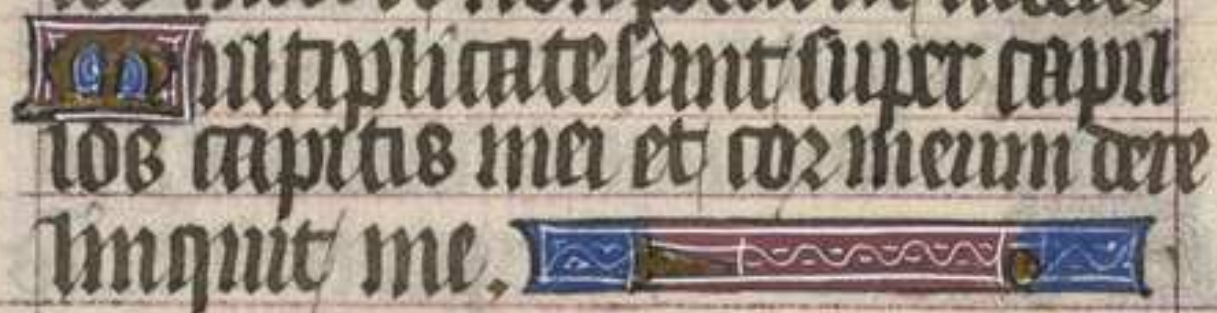 Multiplicate sunt super capil
los capitis mei et cor meum dere
linquit me.